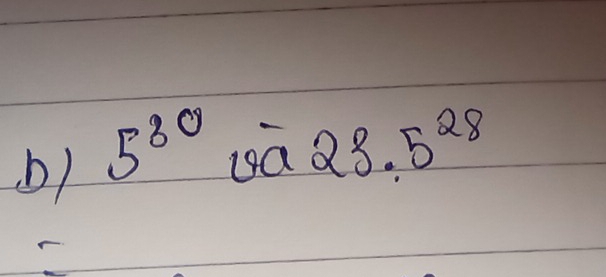 b) 5³⁰ và 23.5²⁸